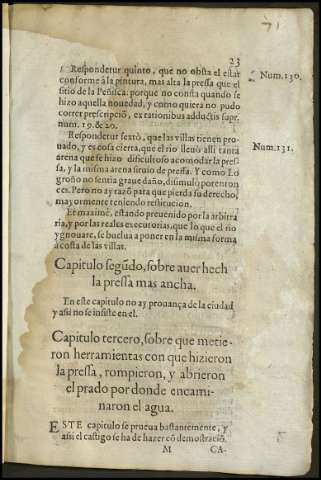 71
23
Respondetur quinto, que no obsta el estar
Num. 130.
conforme à la pintura, mas alta la pressa que el
sitio de la Peñisca: porque no consta quando se
hizo aquella nouedad, y como quiera no pudo
correr prescripciõ, ex rationibus adductis supr.
num. 19. & 20.
Respondetur sextò, que las villas tienen pro-
Num. 131.
uado, y es cosa cierta, que el rio lleuò assi tanta
arena que se hizo dificultoso acomodar la pres
sa, y la misma arena siruio de pressa. Y como Lo
groño no sentia graue daño, disimulò por enton
ces. Pero no ay razõ para que pierda su derecho,
mayormente teniendo restitucion.
Et maximè, estando preuenido por la arbitra
ria, y por las reales executorias, que lo que el rio
ygnouare, se buelua a poner en la misma forma
a costa de las villas.
Capitulo segũdo, sobre auer hech
la pressa mas ancha.
En este capitulo no ay prouança de la ciudad
y assi no se insiste en el.
Capitulo tercero, sobre que metie-
ron herramientas con que hizieron
la pressa, rompieron, y abrieron
el prado por donde encami-
naron el agua.
ESTE capitulo se prueua bastantemente, y
assi el castigo se ha de hazer cõ demostraciõ.
M CA-